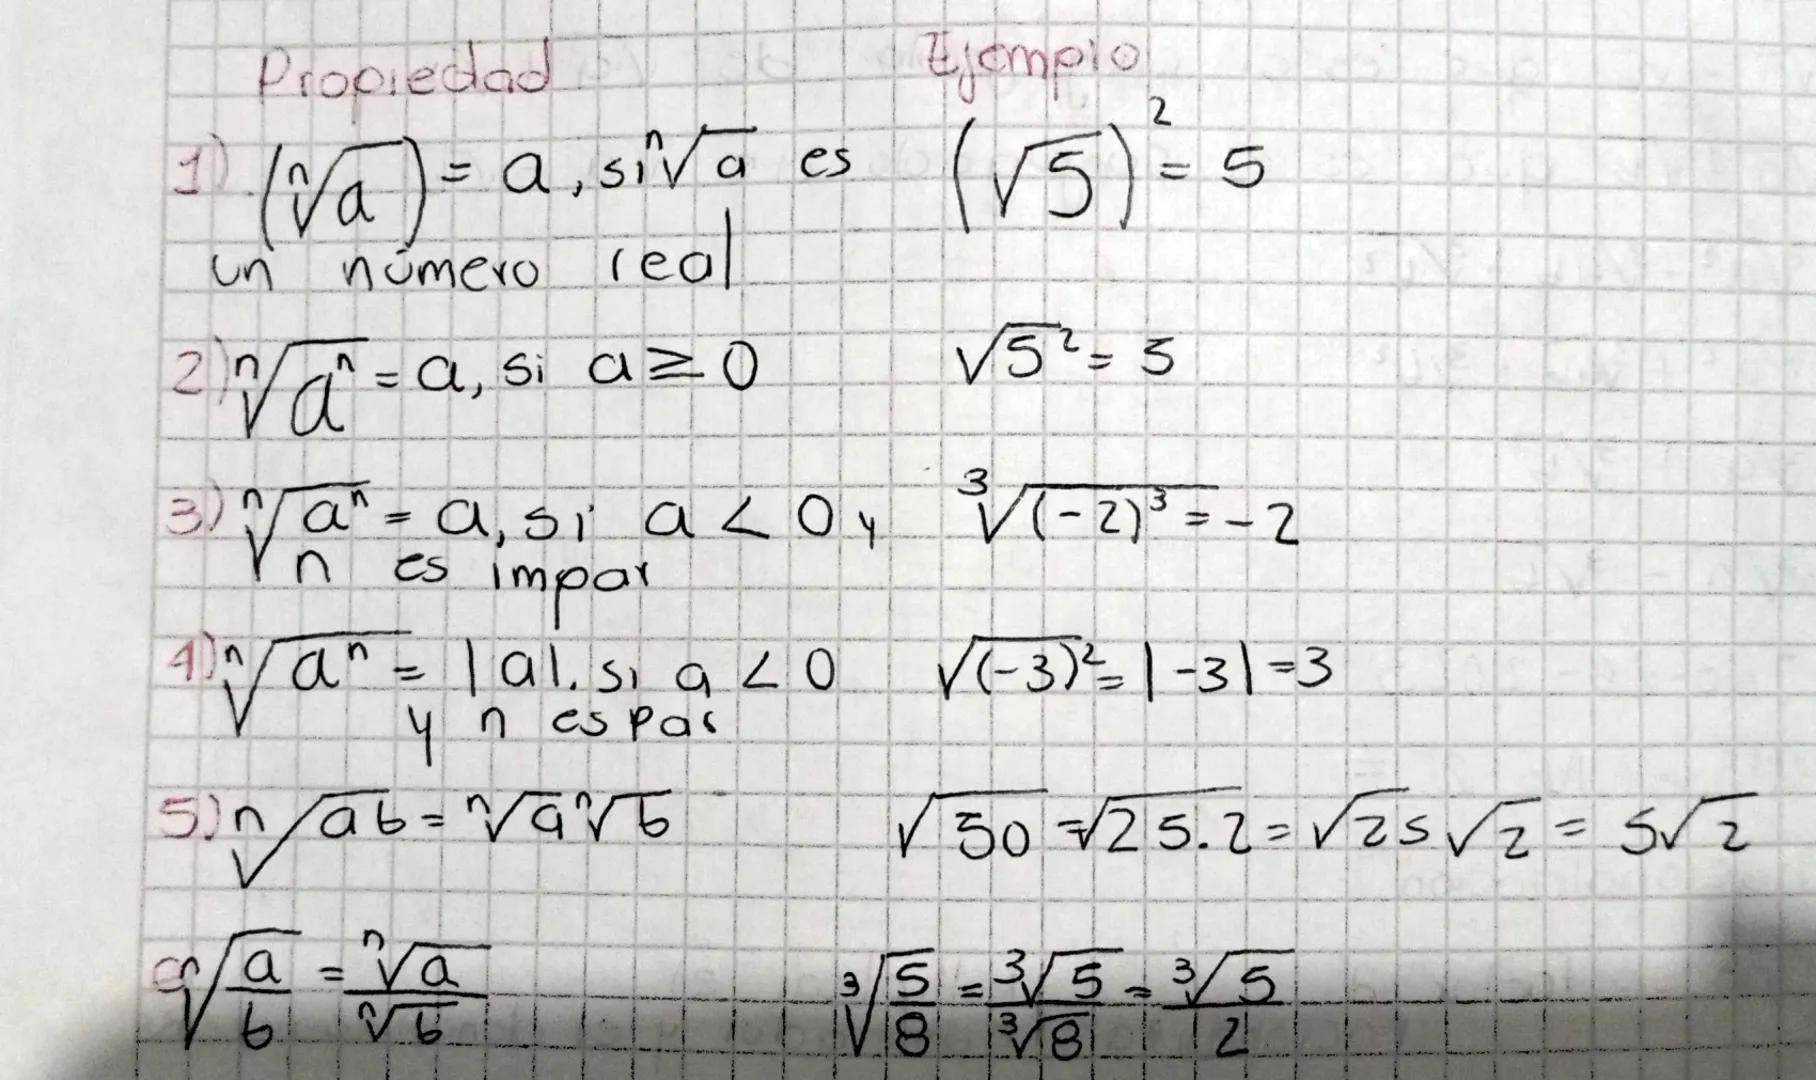 Propiedad Ejemplo
1) (ⁿ√a) = a, si ⁿ√a es (√5)² = 5
un número real
2) ⁿ√aⁿ = a, si a ≥ 0 √5² = 5
3) ⁿ√aⁿ = a, si a < 0 y ³√(-2)³ = -2
n es impar
4) ⁿ√aⁿ = |a|. si a < 0 √(-3)² = |-3| = 3
y n es par
5) ⁿ√ab = ⁿ√a ⁿ√b √50 = √25.2 = √25 √2 = 5√2
6) ⁿ√(a/b) = ⁿ√a / ⁿ√b ³√(5/8) = ³√5 / ³√8 = ³√5 / 2